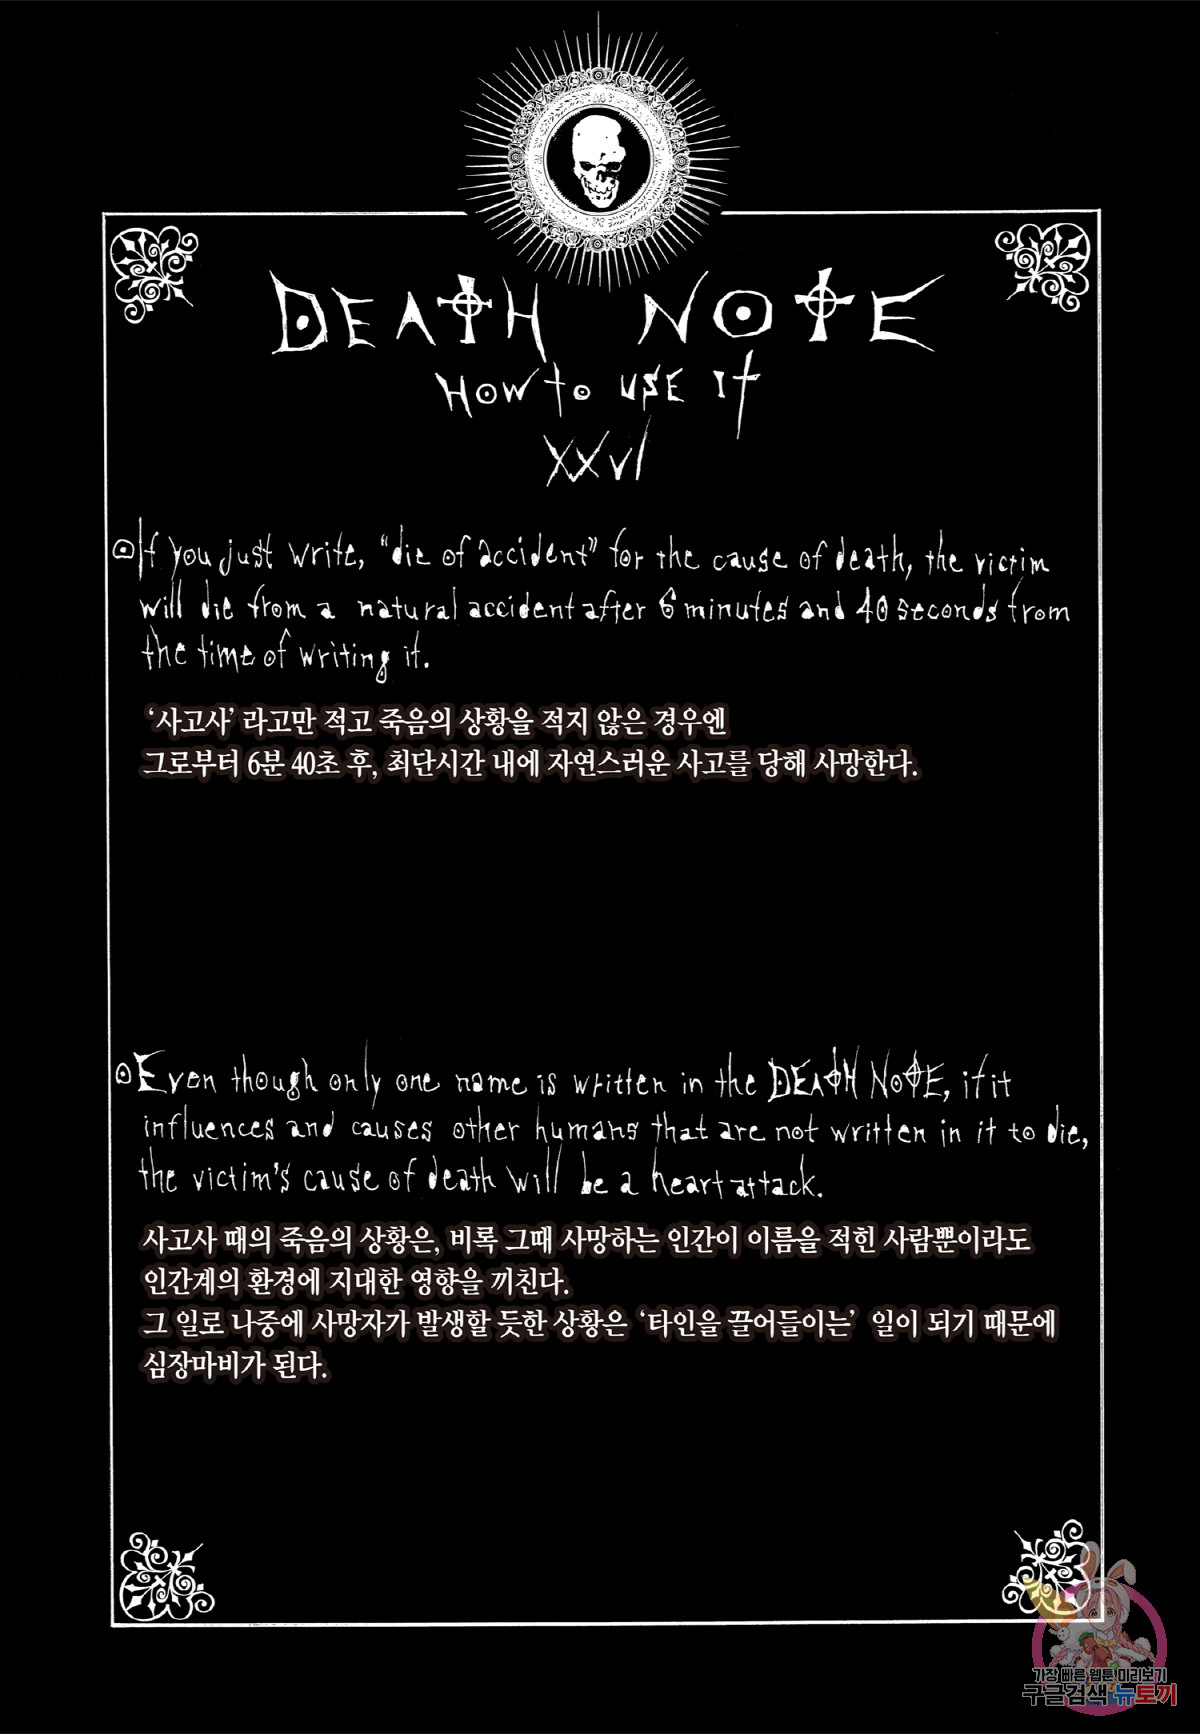 DEATH NOTE
HOW to USE It
XXVI
If you just write, "die of accident" for the cause of death, the victim
will die from a natural accident after 6 minutes and 40 seconds from
the time of writing it.
‘사고사’ 라고만 적고 죽음의 상황을 적지 않은 경우엔
그로부터 6분 40초 후, 최단시간 내에 자연스러운 사고를 당해 사망한다.
Even though only one name is written in the DEATH NOTE, if it
influences and causes other humans that are not written in it to die,
the victim's cause of death will be a heart attack.
사고사 때의 죽음의 상황은, 비록 그때 사망하는 인간이 이름을 적힌 사람뿐이라도
인간계의 환경에 지대한 영향을 끼친다.
그 일로 나중에 사망자가 발생할 듯한 상황은 ‘타인을 끌어들이는’ 일이 되기 때문에
심장마비가 된다.
가장 빠른 웹툰 미리보기
구글검색 뉴토끼